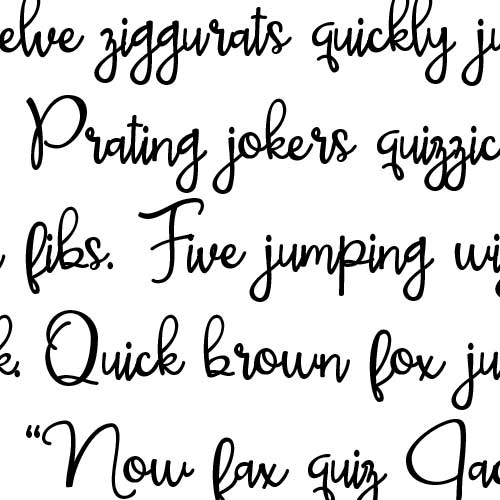 elve ziggurats quickly ju
Prating jokers quizzic
fibs. Five jumping wi
k. Quick brown fox ju
“Now fax quiz Jac